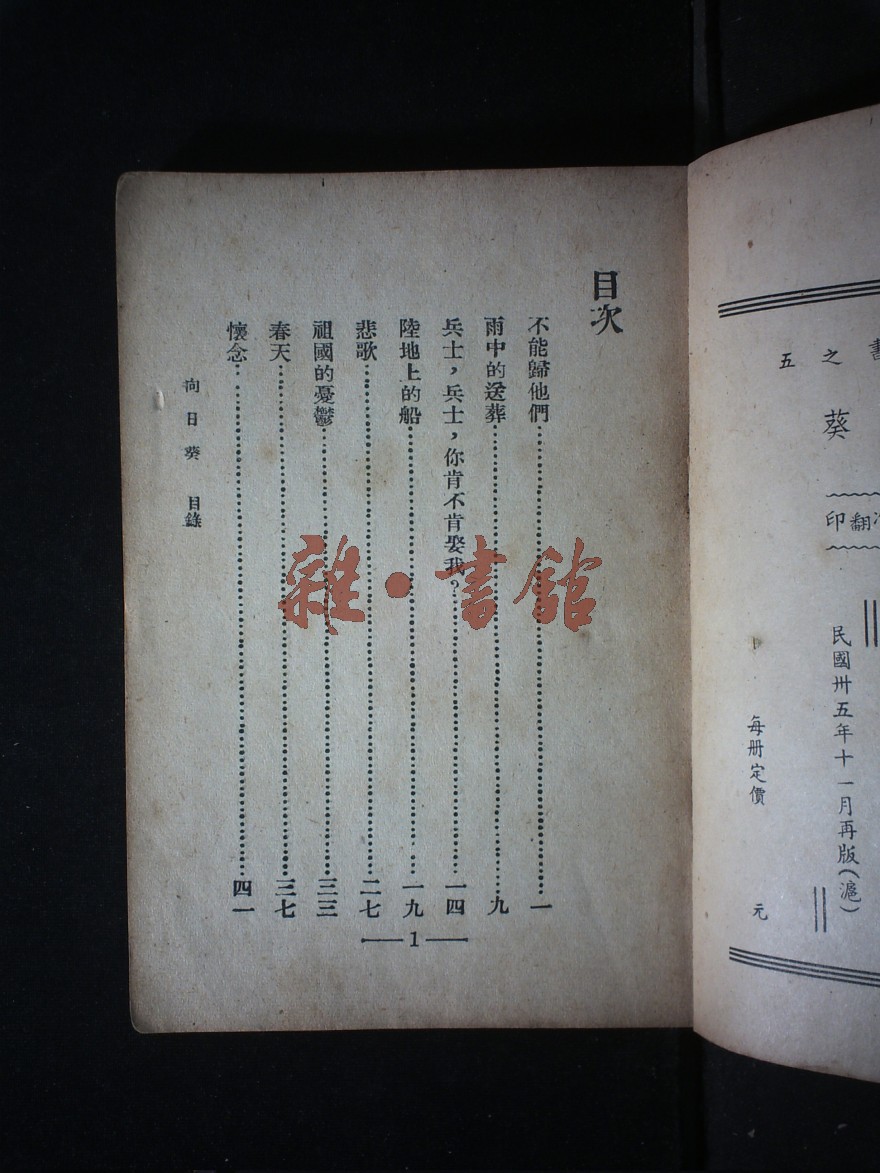 書之五
葵
翻印
民國卅五年十一月再版(滬)
每册定價　元
目次
不能歸他們 一
雨中的送葬 九
兵士，兵士，你肯不肯娶我？ 一四
陸地上的船 一九
悲歌 二七
祖國的憂鬱 三三
春天 三七
懷念 四一
向日葵 目錄
1
雜·書館